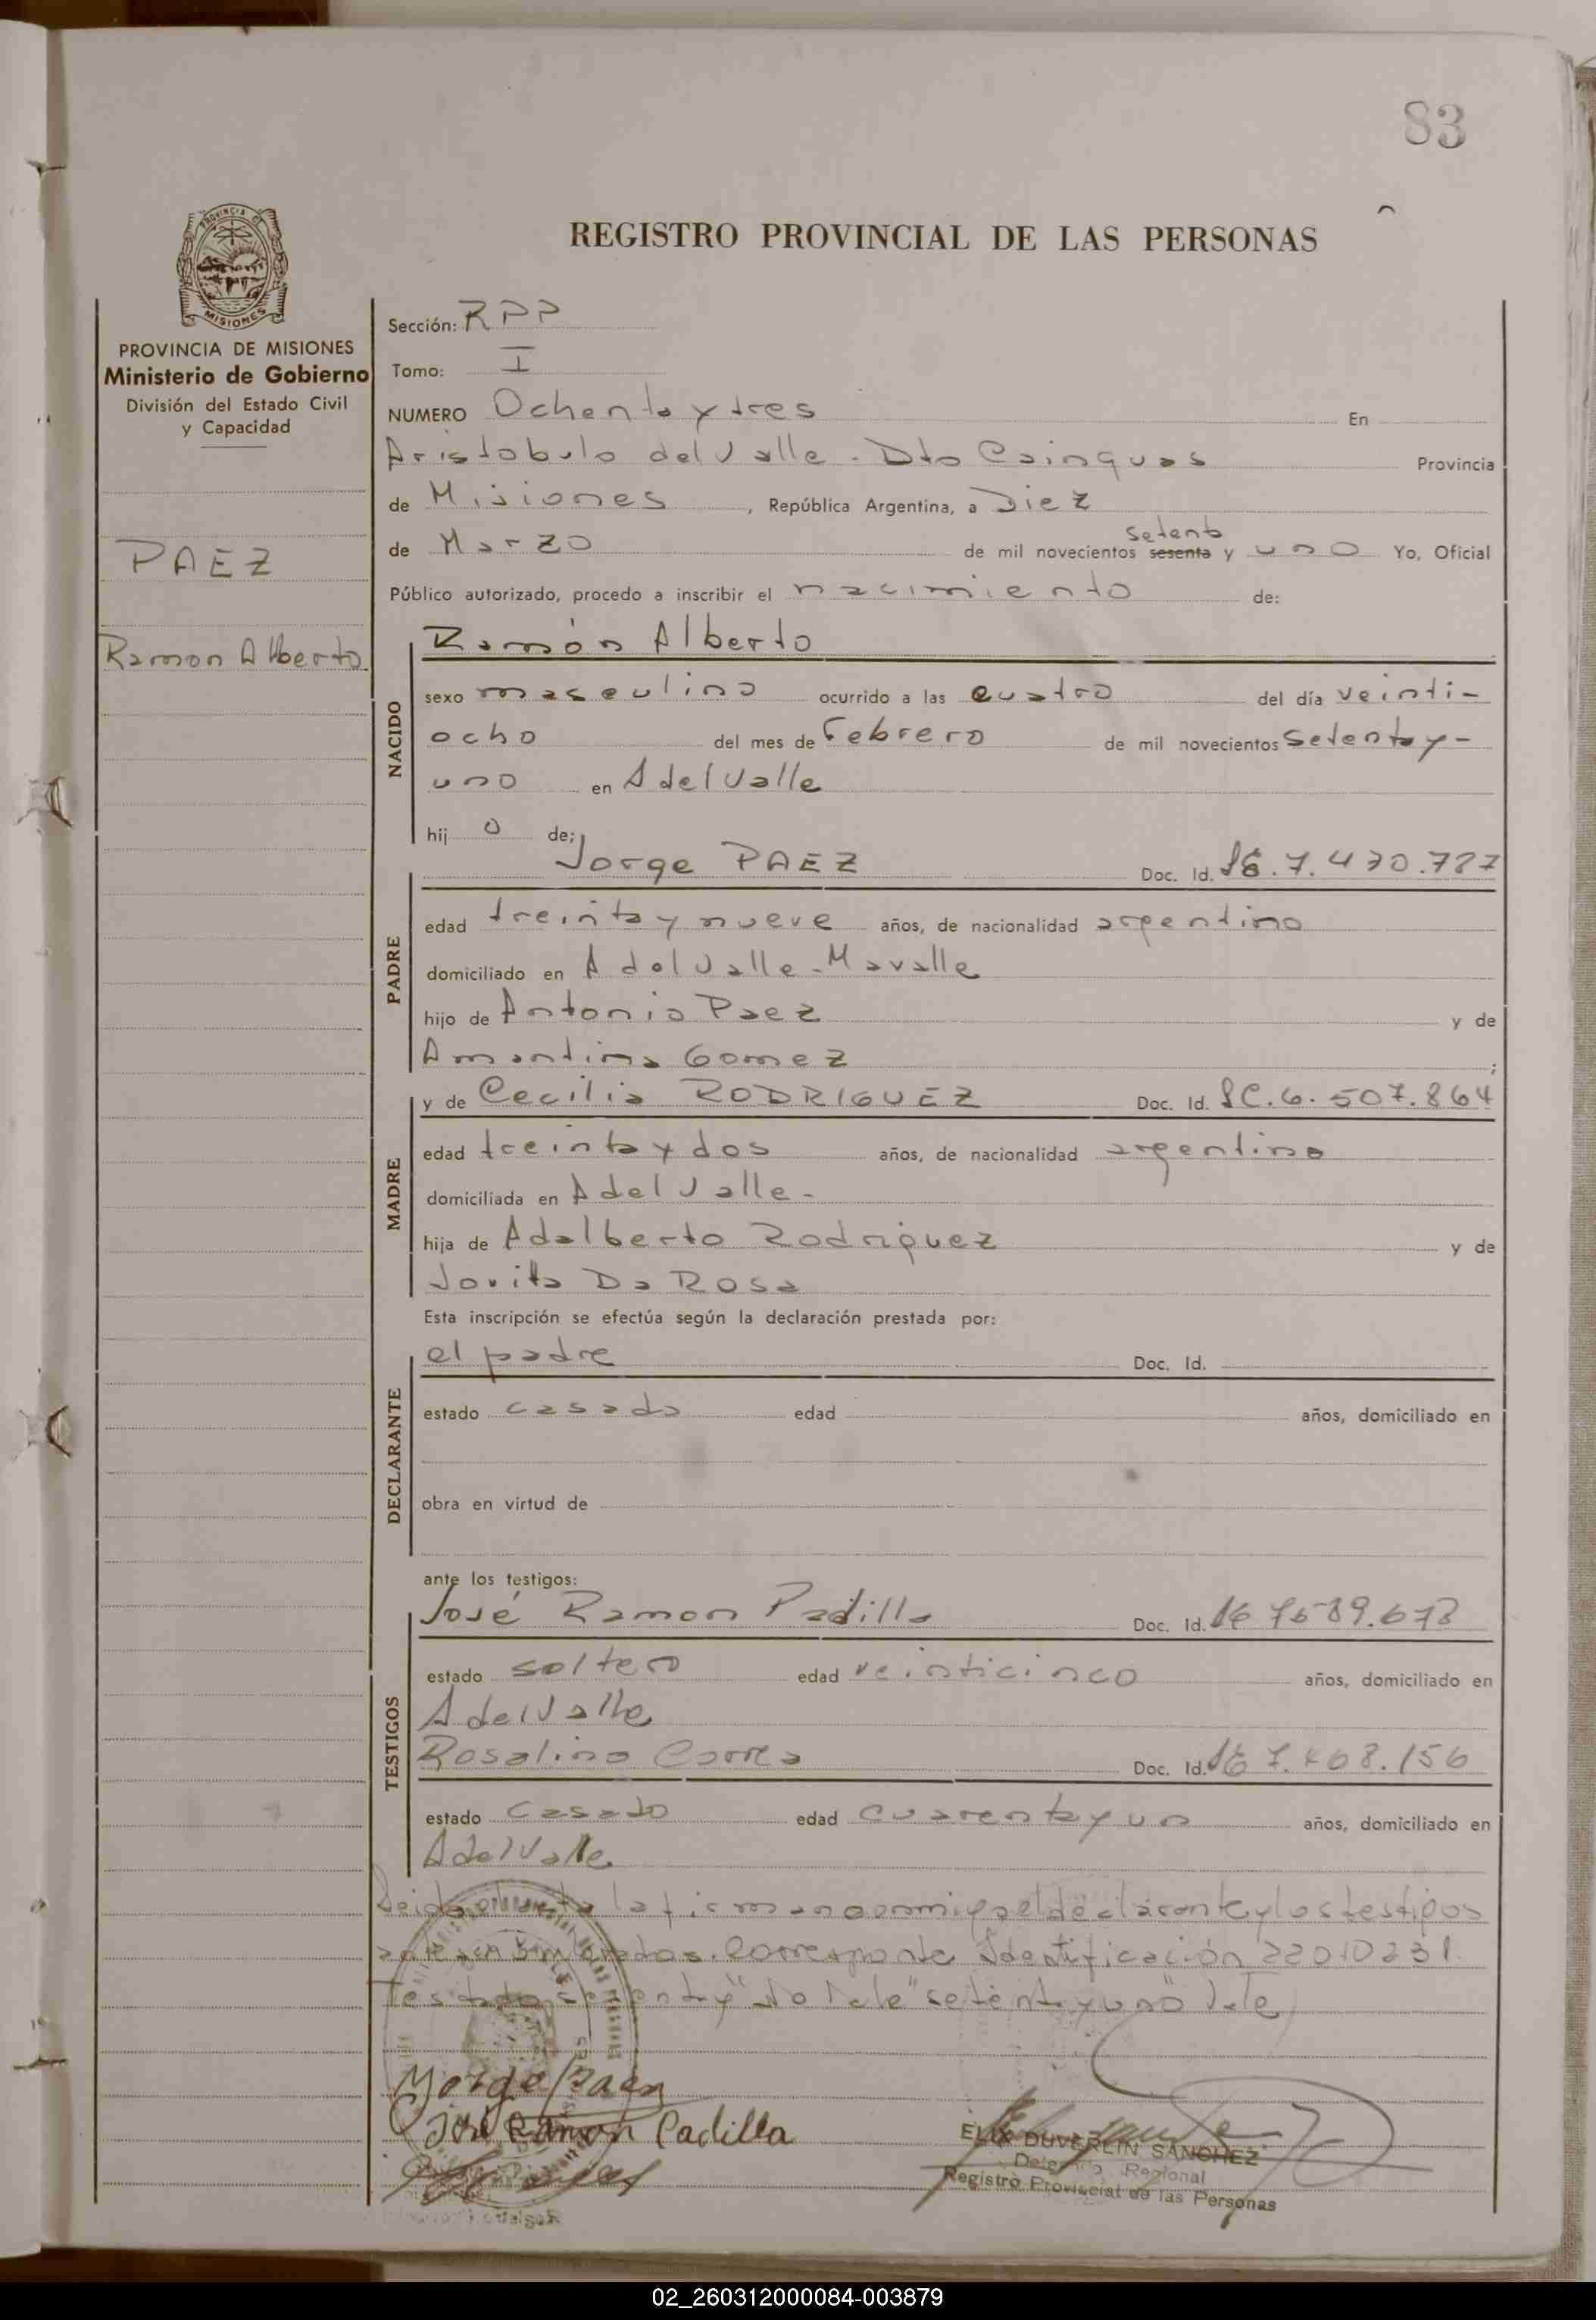 83
REGISTRO PROVINCIAL DE LAS PERSONAS
PROVINCIA DE MISIONES
Ministerio de Gobierno
División del Estado Civil
y Capacidad
PAEZ
Ramon Alberto
Sección: RPP
Tomo: I
NUMERO Ochenta y tres En
Aristobulo del Valle - Dto Cainguas Provincia
de Misiones, República Argentina, a Diez
setenta
de Marzo de mil novecientos sesenta y uno Yo, Oficial
Público autorizado, procedo a inscribir el nacimiento de:
NACIDO
Ramón Alberto
sexo masculino ocurrido a las cuatro del día veinti-
ocho del mes de Febrero de mil novecientos setenta y-
uno en A del Valle
hij o de:
PADRE
Jorge PAEZ Doc. Id.
edad treinta y nueve años, de nacionalidad argentino
domiciliado en A del Valle - Mavalle
hijo de Antonio Paez y de
Amantina Gomez ;
MADRE
y de Cecilia RODRIGUEZ Doc. Id. LC. 6.507.864
edad treinta y dos años, de nacionalidad argentina
domiciliada en A del Valle -
hija de Adalberto Rodriguez y de
Jovita Da Rosa
Esta inscripción se efectúa según la declaración prestada por:
DECLARANTE
el padre Doc. Id.
estado casado edad años, domiciliado en
obra en virtud de
ante los testigos:
TESTIGOS
José Ramon Padilla Doc. Id.
estado soltero edad veinticinco años, domiciliado en
A del Valle
Rosalino Correa Doc. Id.
estado casado edad cuarenta y un años, domiciliado en
A del Valle
Leida el acta la firman conmigo el declarante y los testigos
antes nombrados. Corresponde Identificación 22010231
Testado "sesenta y" No Vale "setenta y uno" Vale
Jorge Paez
José Ramon Padilla
ELIX DUVERLIN SANCHEZ
Delegado Regional
Registro Provincial de las Personas
02_260312000084-003879